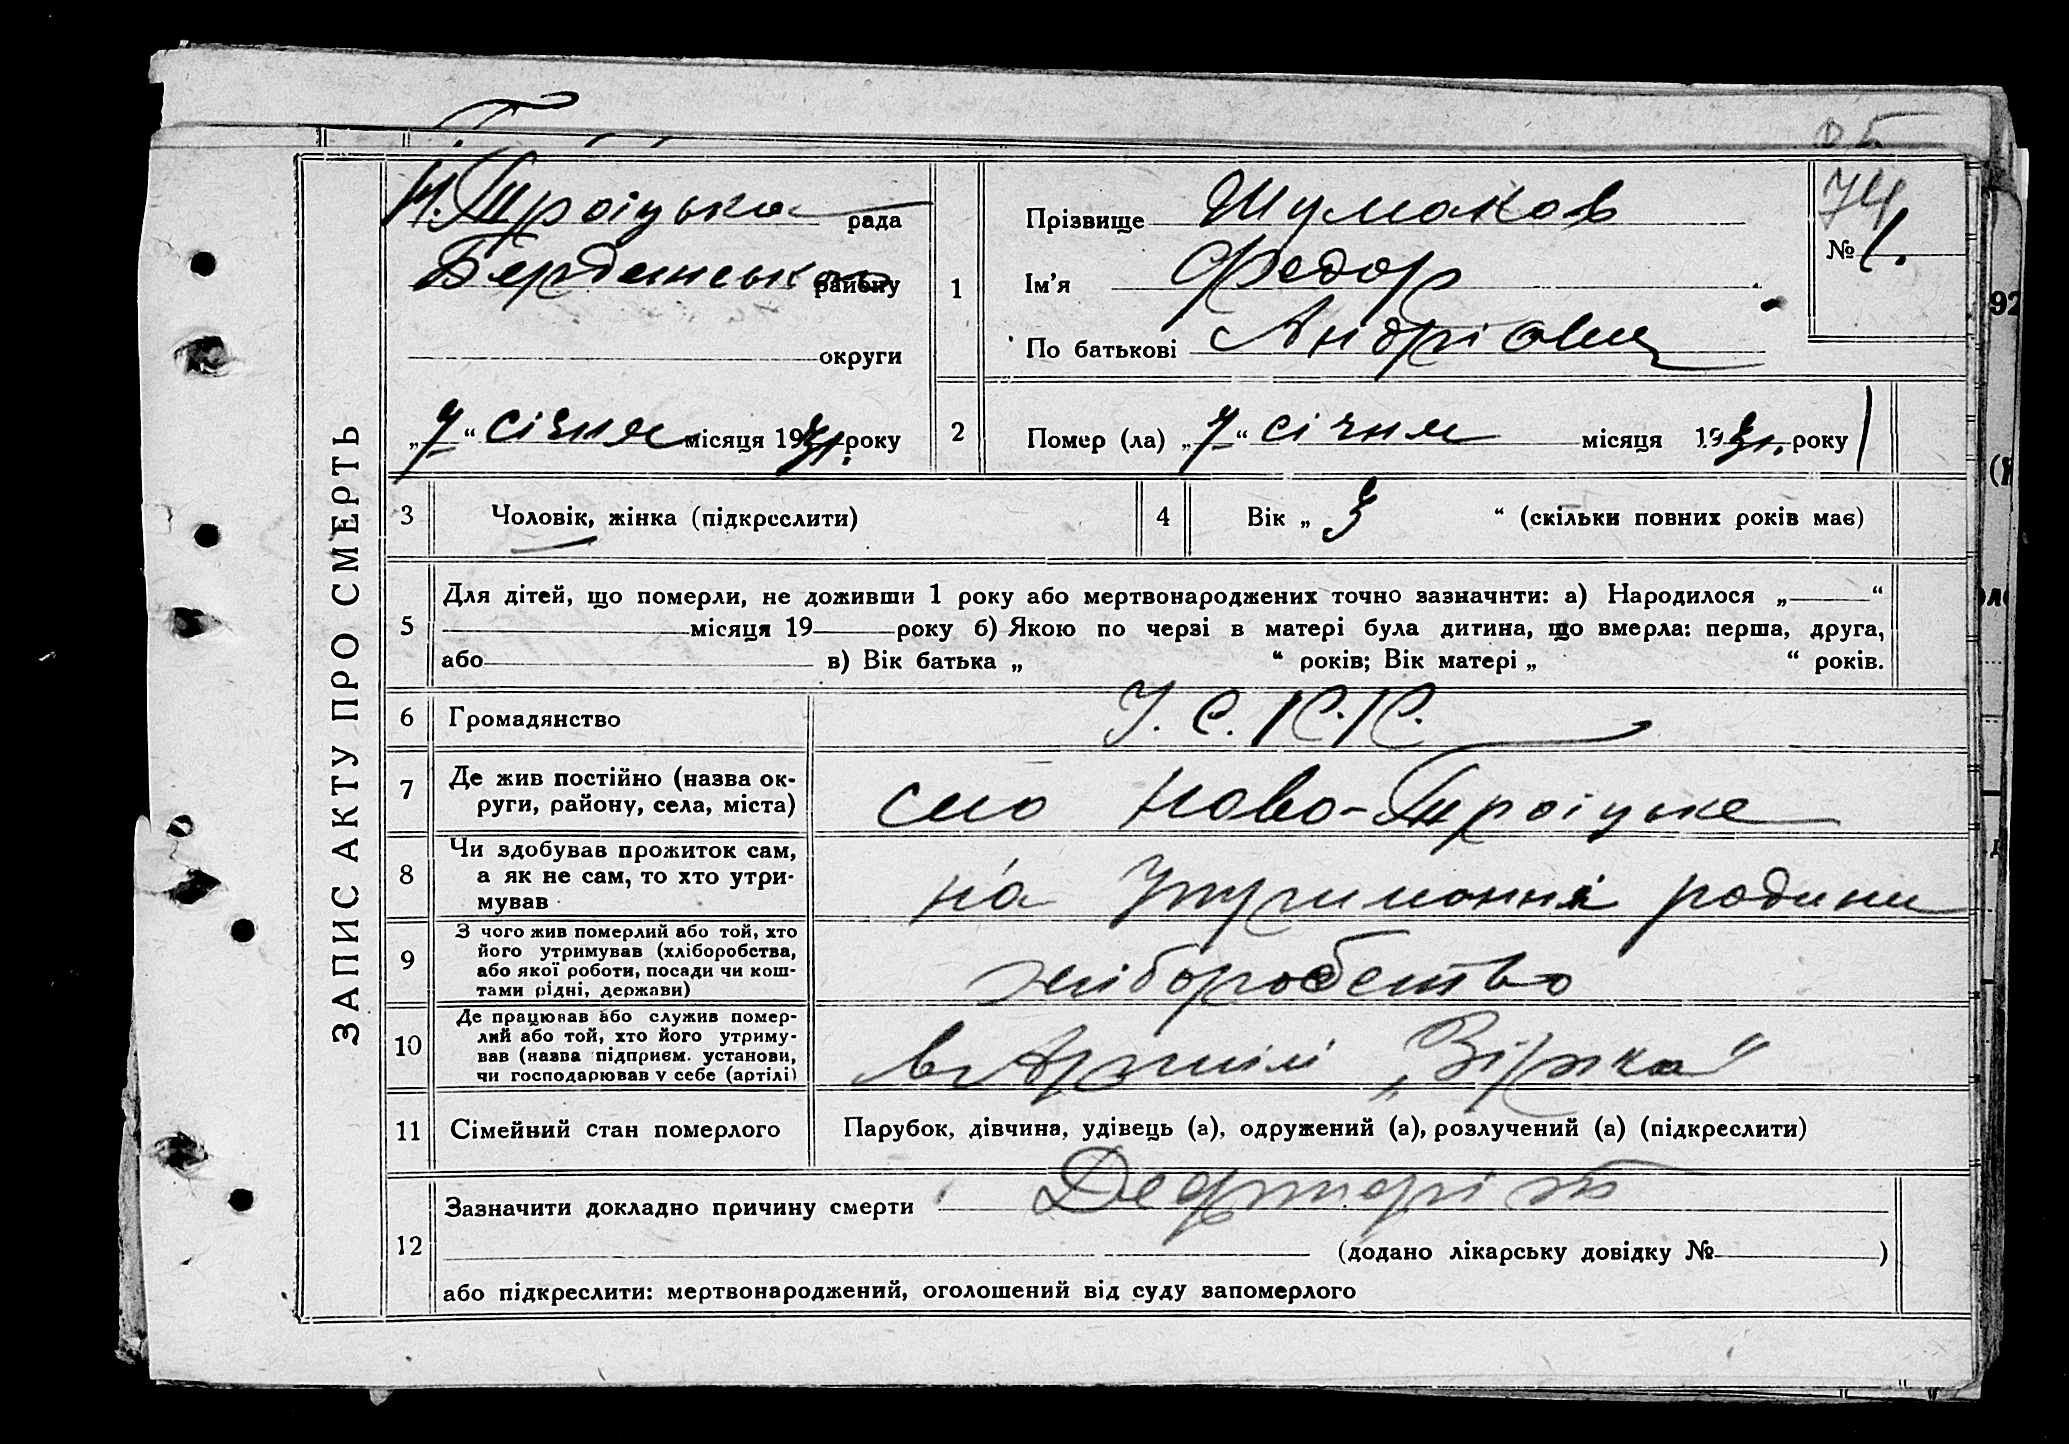 ЗАПИС АКТУ ПРО СМЕРТЬ
Н. Троіцька рада
Бердянського району
округи
„7“ січня місяця 1931. року
1
Прізвище Шумаков
Ім'я Федор
По батькові Андрієвич
74
№ 1.
2 Помер (ла) „7“ січня місяця 1931. року
3 Чоловік, жінка (підкреслити)
4 Вік „ 3 “ (скільки повних років має)
5 Для дітей, що померли, не доживши 1 року або мертвонароджених точно зазначити: а) Народилося „ “
місяця 19 року б) Якою по черзі в матері була дитина, що вмерла: перша, друга,
або в) Вік батька „ “ років; Вік матері „ “ років.
6 Громадянство У. С. Р. Р.
7 Де жив постійно (назва ок-
руги, району, села, міста) село Ново-Троіцьке
8 Чи здобував прожиток сам,
а як не сам, то хто утри-
мував на утриманні родини
9 З чого жив померлий або той, хто
його утримував (хліборобства,
або якої роботи, посади чи кош-
тами рідні, держави) хліборобство
10 Де працював або служив помер-
лий або той, хто його утриму-
вав (назва підприєм. установи,
чи господарював у себе (артілі) в Артілі „Зірка“
11 Сімейний стан померлого Парубок, дівчина, удівець (а), одружений (а), розлучений (а) (підкреслити)
12 Зазначити докладно причину смерти Дефторіт
(додано лікарську довідку № )
або підкреслити: мертвонароджений, оголошений від суду запомерлого